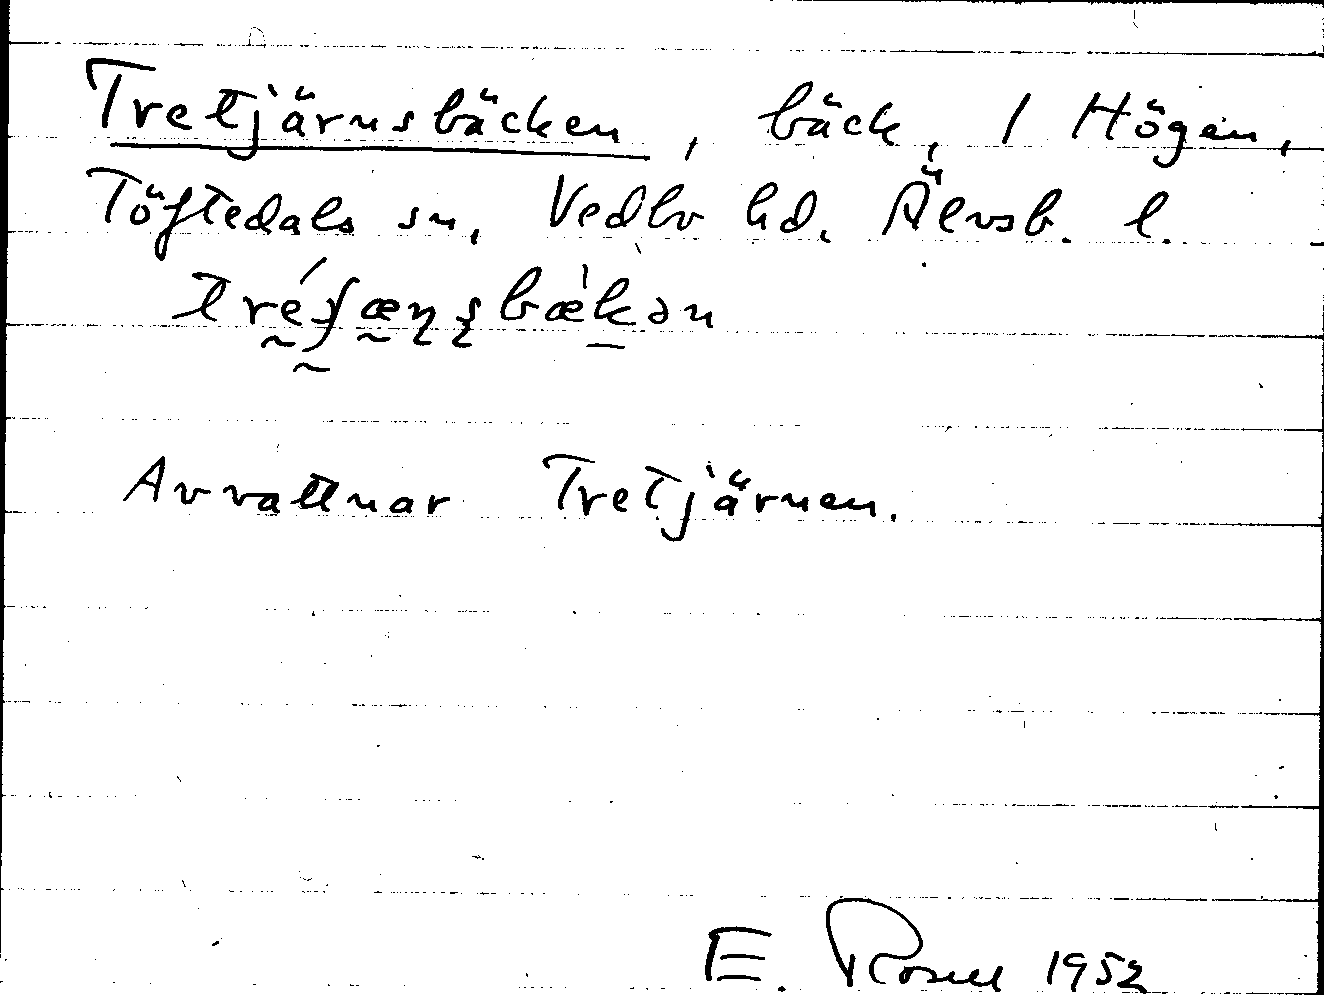 Tretjärnsbäcken, bäck, 1 Högen,
Töftedals sn, Vedbo hd. Älvsb. l.
tréʃæɳʂbæ̀kən
Avvattnar Tretjärnen.
E. Rosell 1952